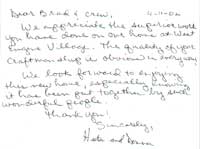 Dear Brad & Crew, 4-11-02
We appreciate the superior work
you have done on our home at West
Eugene Village. The quality of your
Craftmanship is obvious in everyway.
We look forward to enjoying
this new home, especially knowing
it has been put together by such
wonderful people.
Thank you!
Sincerely,
and Donna